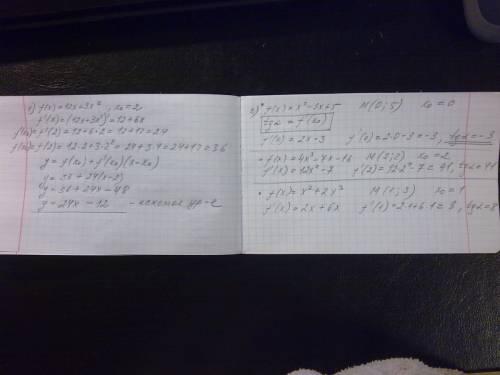 1) f(x) = 12x+3x², x₀=2
f'(x) = (12x+3x²)' = 12+6x
f'(x₀) = f'(2) = 12+6·2 = 12+12=24
f(x₀) = f(2) = 12·2+3·2² = 24+3·4=24+12=36
y = f(x₀) + f'(x₀)(x-x₀)
y = 36 + 24(x-2)
y = 36 + 24x - 48
y = 24x - 12 - искомое ур-е
2) • f(x) = x²-3x+5 M(0;5) x₀=0
tgα = f'(x₀)
f'(x) = 2x-3 f'(0) = 2·0-3=-3, tgα=-3
• f(x) = 4x³-7x-16 M(2;2) x₀=2
f'(x) = 12x²-7 f'(2) = 12·2²-7=41, tgα=41
• f(x) = x²+2x³ M(1;3) x₀=1
f'(x) = 2x+6x f'(1) = 2·1+6·1=8, tgα=8